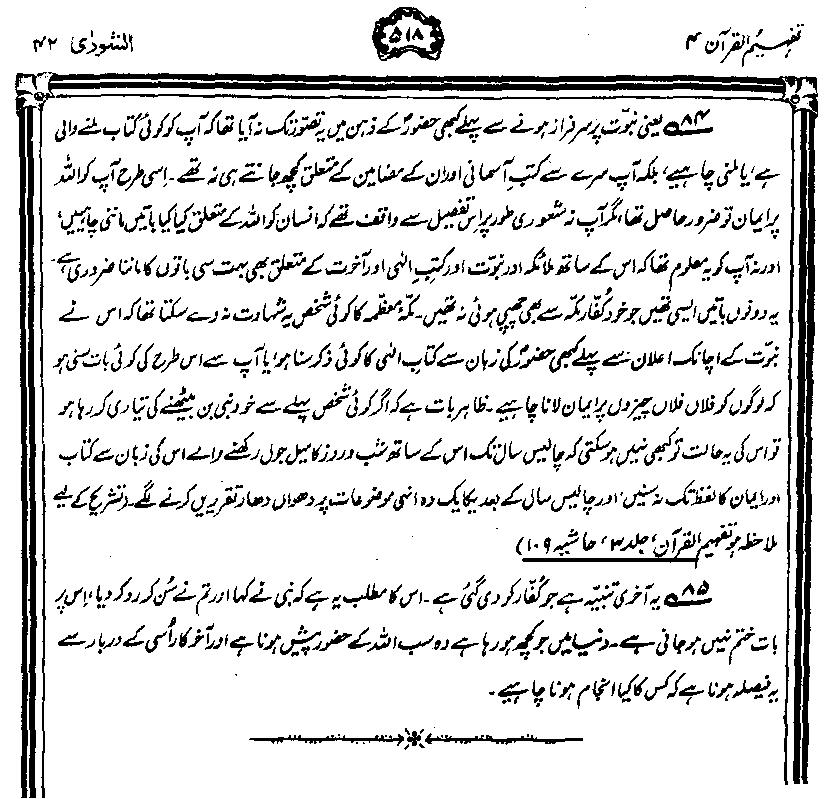 تفہیم القرآن ۴
۵۱۸
الشورٰی ۴۲
۸۴؎ یعنی نبوّت پر سرفراز ہونے سے پہلے کبھی حضورؐ کے ذہن میں یہ تصوّر تک نہ آیا تھا کہ آپ کو کوئی کتاب ملنے والی
ہے، یا ملنی چاہیے، بلکہ آپ سرے سے کتبِ آسمانی اور ان کے مضامین کے متعلق کچھ جانتے ہی نہ تھے۔ اِسی طرح آپ کو اللہ
پر ایمان تو ضرور حاصل تھا، مگر آپ نہ شعوری طور پر اِس تفصیل سے واقف تھے کہ انسان کو اللہ کے متعلق کیا کیا باتیں ماننی چاہییں،
اور نہ آپ کو یہ معلوم تھا کہ اس کے ساتھ ملائکہ اور نبوّت اور کتبِ الٰہی اور آخرت کے متعلق بھی بہت سی باتوں کا ماننا ضروری ہے۔
یہ دونوں باتیں ایسی تھیں جو خود کُفّارِ مکّہ سے بھی چھپی ہوئی نہ تھیں۔ مکّۂ معظمہ کا کوئی شخص یہ شہادت نہ دے سکتا تھا کہ اس نے
نبوّت کے اچانک اعلان سے پہلے کبھی حضورؐ کی زبان سے کتابِ الٰہی کا کوئی ذکر سنا ہو، یا آپ سے اس طرح کی کوئی بات سنی ہو
کہ لوگوں کو فلاں فلاں چیزوں پر ایمان لانا چاہیے۔ ظاہر بات ہے کہ اگر کوئی شخص پہلے سے خود نبی بن بیٹھنے کی تیاری کر رہا ہو
تو اس کی یہ حالت تو کبھی نہیں ہو سکتی کہ چالیس سال تک اس کے ساتھ شب و روز کا میل جول رکھنے والے اس کی زبان سے کتاب
اور ایمان کا لفظ تک نہ سنیں، اور چالیس سال کے بعد یکایک وہ انہی موضوعات پر دھواں دھار تقریریں کرنے لگے۔ (تشریح کے لیے
ملاحظہ ہو تفہیم القرآن، جلد ۳، حاشیہ ۱۰۹)
۸۵؎ یہ آخری تنبیہ ہے جو کُفّار کو دی گئی ہے۔ اس کا مطلب یہ ہے کہ نبی نے کہا اور تم نے سُن کر رد کر دیا، اِس پر
بات ختم نہیں ہو جانی ہے۔ دنیا میں جو کچھ ہو رہا ہے وہ سب اللہ کے حضور پیش ہونا ہے اور آخرکار اُسی کے دربار سے
یہ فیصلہ ہونا ہے کہ کس کا کیا انجام ہونا چاہیے۔